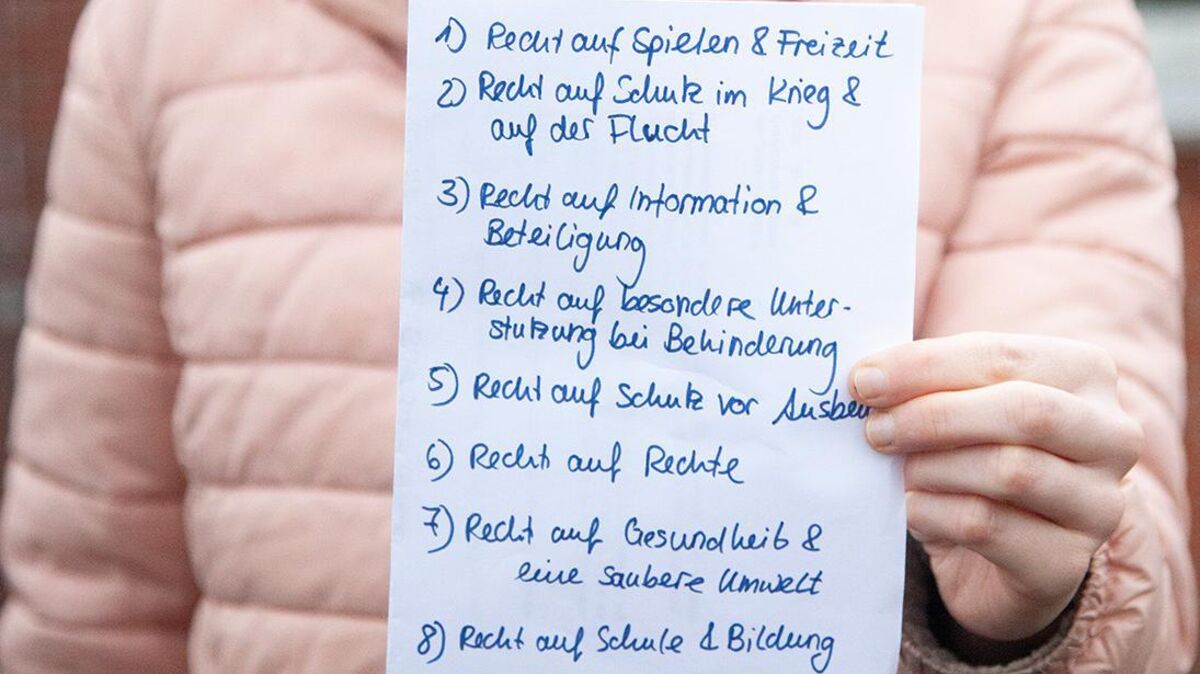 1) Recht auf Spielen & Freizeit
2) Recht auf Schutz im Krieg &
auf der Flucht
3) Recht auf Information &
Beteiligung
4) Recht auf besondere Unter-
stützung bei Behinderung
5) Recht auf Schutz vor Ausbeu
6) Recht auf Rechte
7) Recht auf Gesundheit &
eine saubere Umwelt
8) Recht auf Schule & Bildung